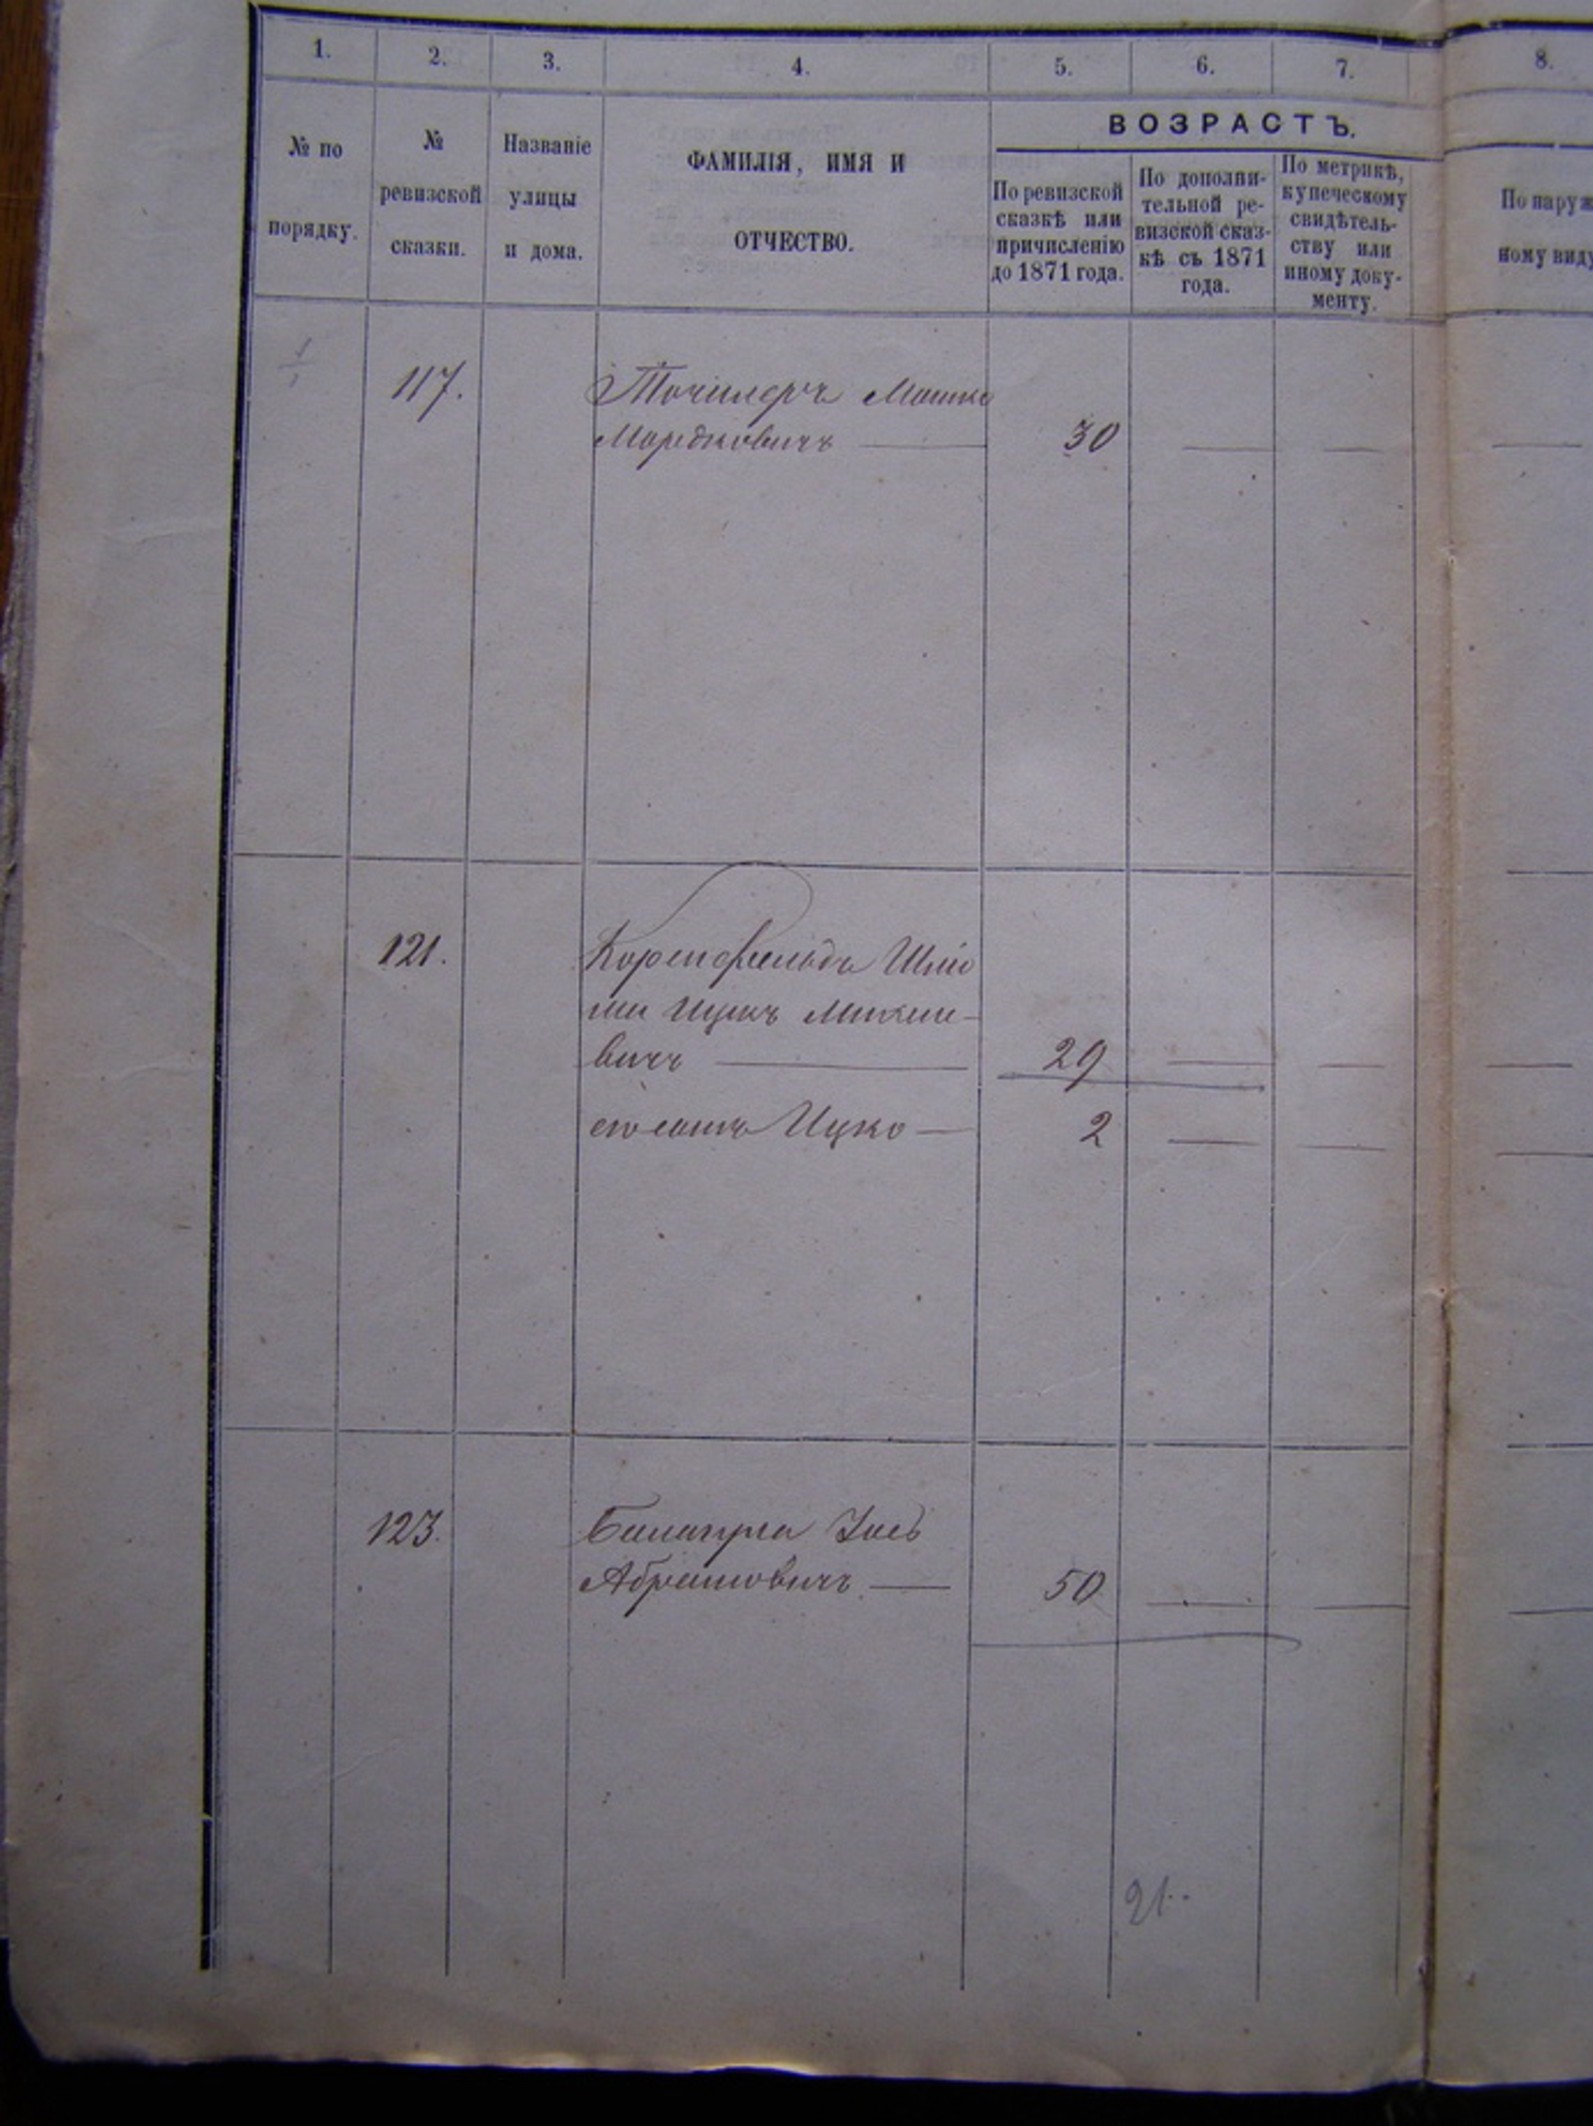 1. 2. 3. 4. 5. 6. 7. 8.
№ по порядку.
№ ревизской сказки.
Названіе улицы и дома.
ФАМИЛІЯ, ИМЯ И
ОТЧЕСТВО.
ВОЗРАСТЪ.
По ревизской
сказкѣ или
причисленію
до 1871 года.
По дополни-
тельной ре-
визской сказ-
кѣ съ 1871
года.
По метрикѣ,
купеческому
свидѣтель-
ству или
иному доку-
менту.
По наруж
ному виду
117. Мошко
Мордковичъ 30
121. Коренфельдъ
Ицикъ
вичъ 29
его сынъ Ицко 2
123.
Абрамовичъ 50
21.